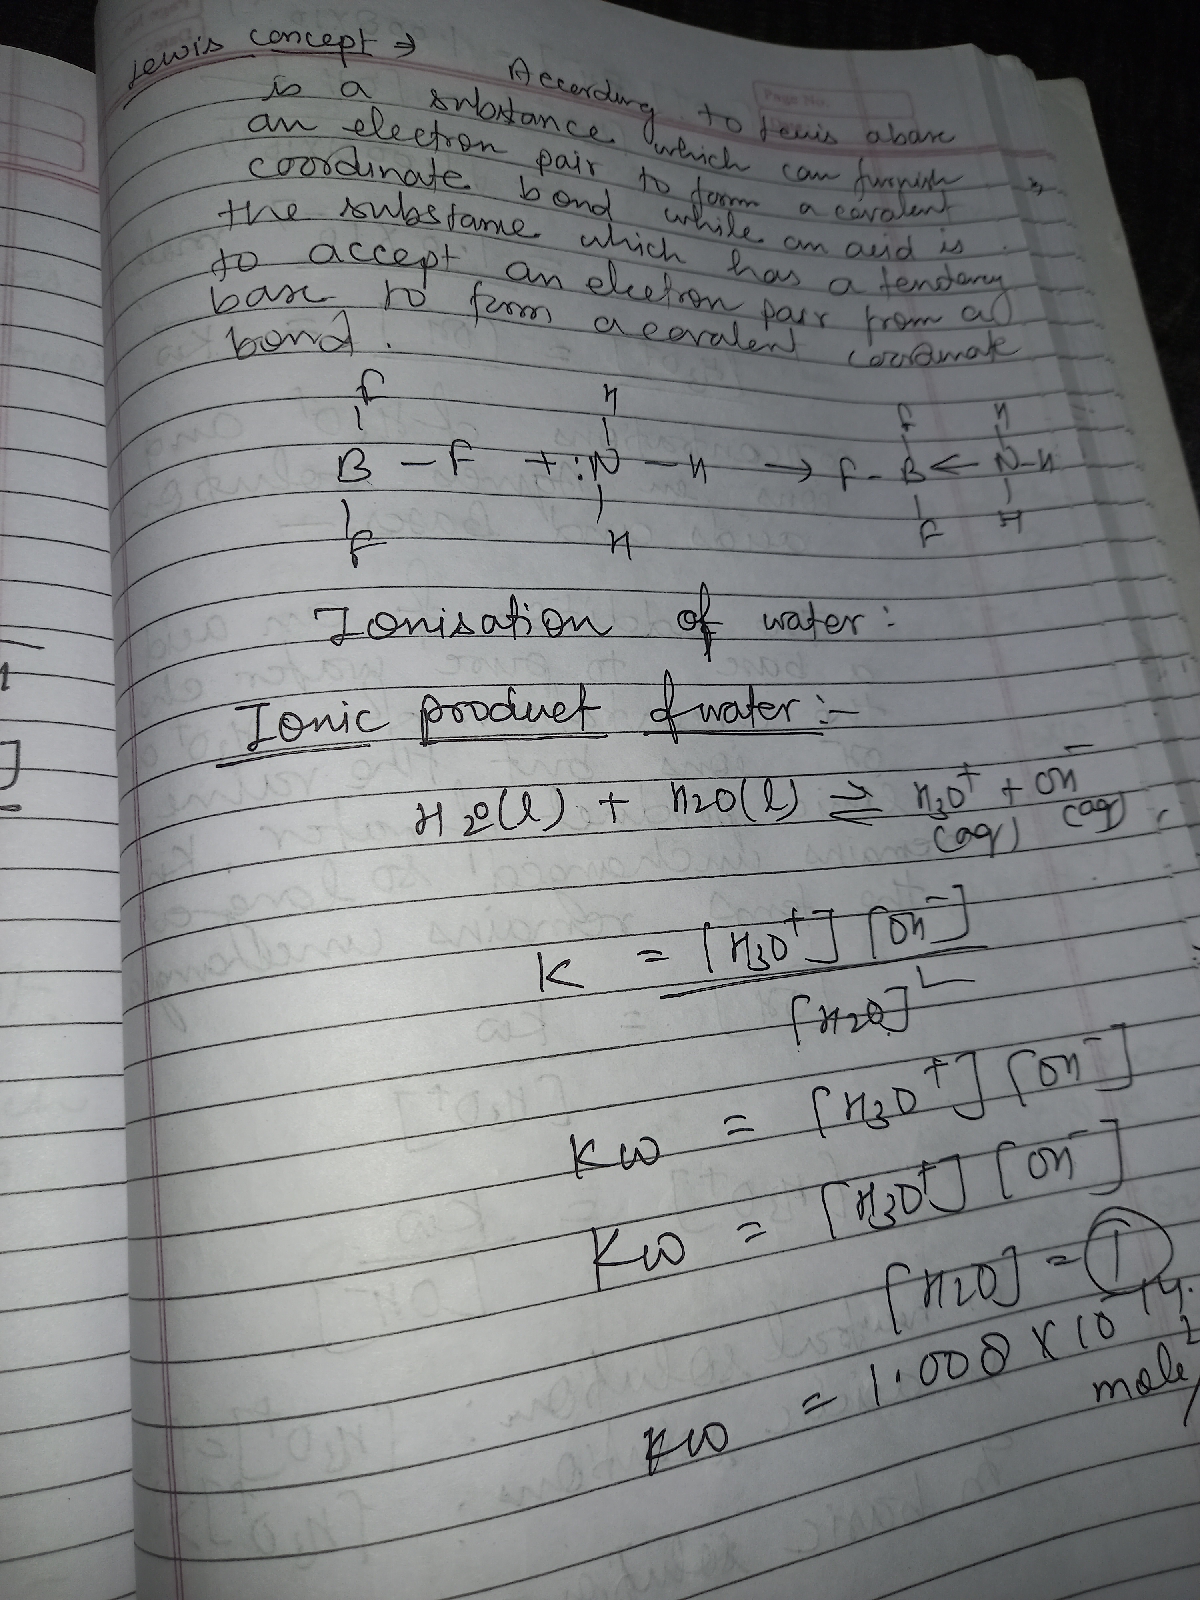 Lewis concept →
According to Lewis a base
is a substance which can furnish
an electron pair to form a covalent
coordinate bond while an acid is
the substame which has a tendany
to accept an electron pair from a
base to form a covalent coordinate
bond.
F H F H
B – F + :N – H → F – B ← N – H
F H F H
Ionisation of water:
Ionic product of water :-
H2O(l) + H2O(l) ⇌ H3O+ + OH-
(aq) (aq)
K = [H3O+] [OH-]
[H2O]2
Kw = [H3O+] [OH-]
Kw = [H3O+] [OH-]
[H2O] = 1
Kw = 1.008 X 10-14
mole2/